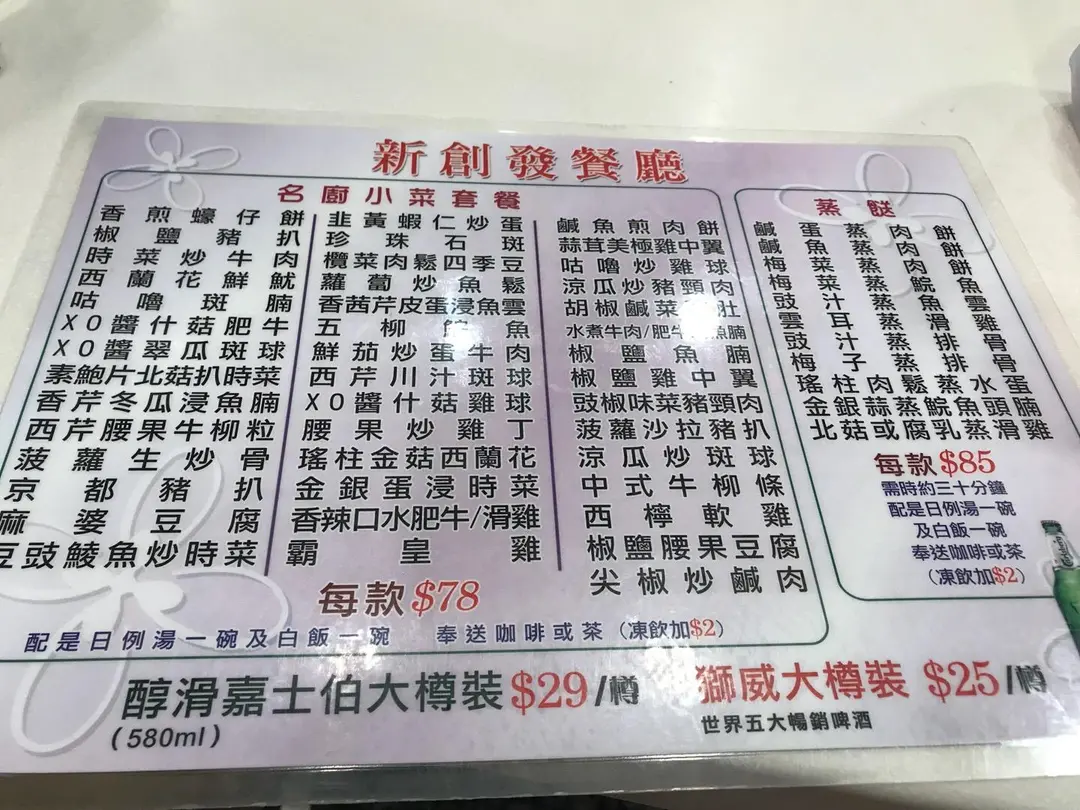 新創發餐廳
名廚小菜套餐
香煎蠔仔餅
椒鹽豬扒
時菜炒牛肉
西蘭花鮮魷
咕嚕斑腩
XO醬什菇肥牛
XO醬翠瓜斑球
素鮑片北菇扒時菜
香芹冬瓜浸魚腩
西芹腰果牛柳粒
菠蘿生炒骨
京都豬扒
麻婆豆腐
豆豉鯪魚炒時菜
韭黃蝦仁炒蛋
珍珠石斑
欖菜肉鬆四季豆
蘿蔔炒魚鬆
香茜芹皮蛋浸魚雲
五柳魚
鮮茄炒蛋牛肉
西芹川汁斑球
XO醬什菇雞球
腰果炒雞丁
瑤柱金菇西蘭花
金銀蛋浸時菜
香辣口水肥牛/滑雞
霸皇雞
鹹魚煎肉餅
蒜茸美極雞中翼
咕嚕炒雞球
涼瓜炒豬頸肉
胡椒鹹菜肚
水煮牛肉/肥牛魚腩
椒鹽魚腩
椒鹽雞中翼
豉椒味菜豬頸肉
菠蘿沙拉豬扒
涼瓜炒斑球
中式牛柳條
西檸軟雞
椒鹽腰果豆腐
尖椒炒鹹肉
每款$78
配是日例湯一碗及白飯一碗 奉送咖啡或茶（凍飲加$2）
蒸餸
鹹蛋蒸肉餅
鹹魚蒸肉餅
梅菜蒸肉餅
梅菜蒸鯇魚
豉汁蒸魚雲
雲耳蒸滑雞
豉汁蒸排骨
梅子蒸排骨
瑤柱肉鬆蒸水蛋
金銀蒜蒸鯇魚頭腩
北菇或腐乳蒸滑雞
每款$85
需時約三十分鐘
配是日例湯一碗
及白飯一碗
奉送咖啡或茶
（凍飲加$2）
醇滑嘉士伯大樽裝$29/樽
(580ml)
獅威大樽裝 $25/樽
世界五大暢銷啤酒